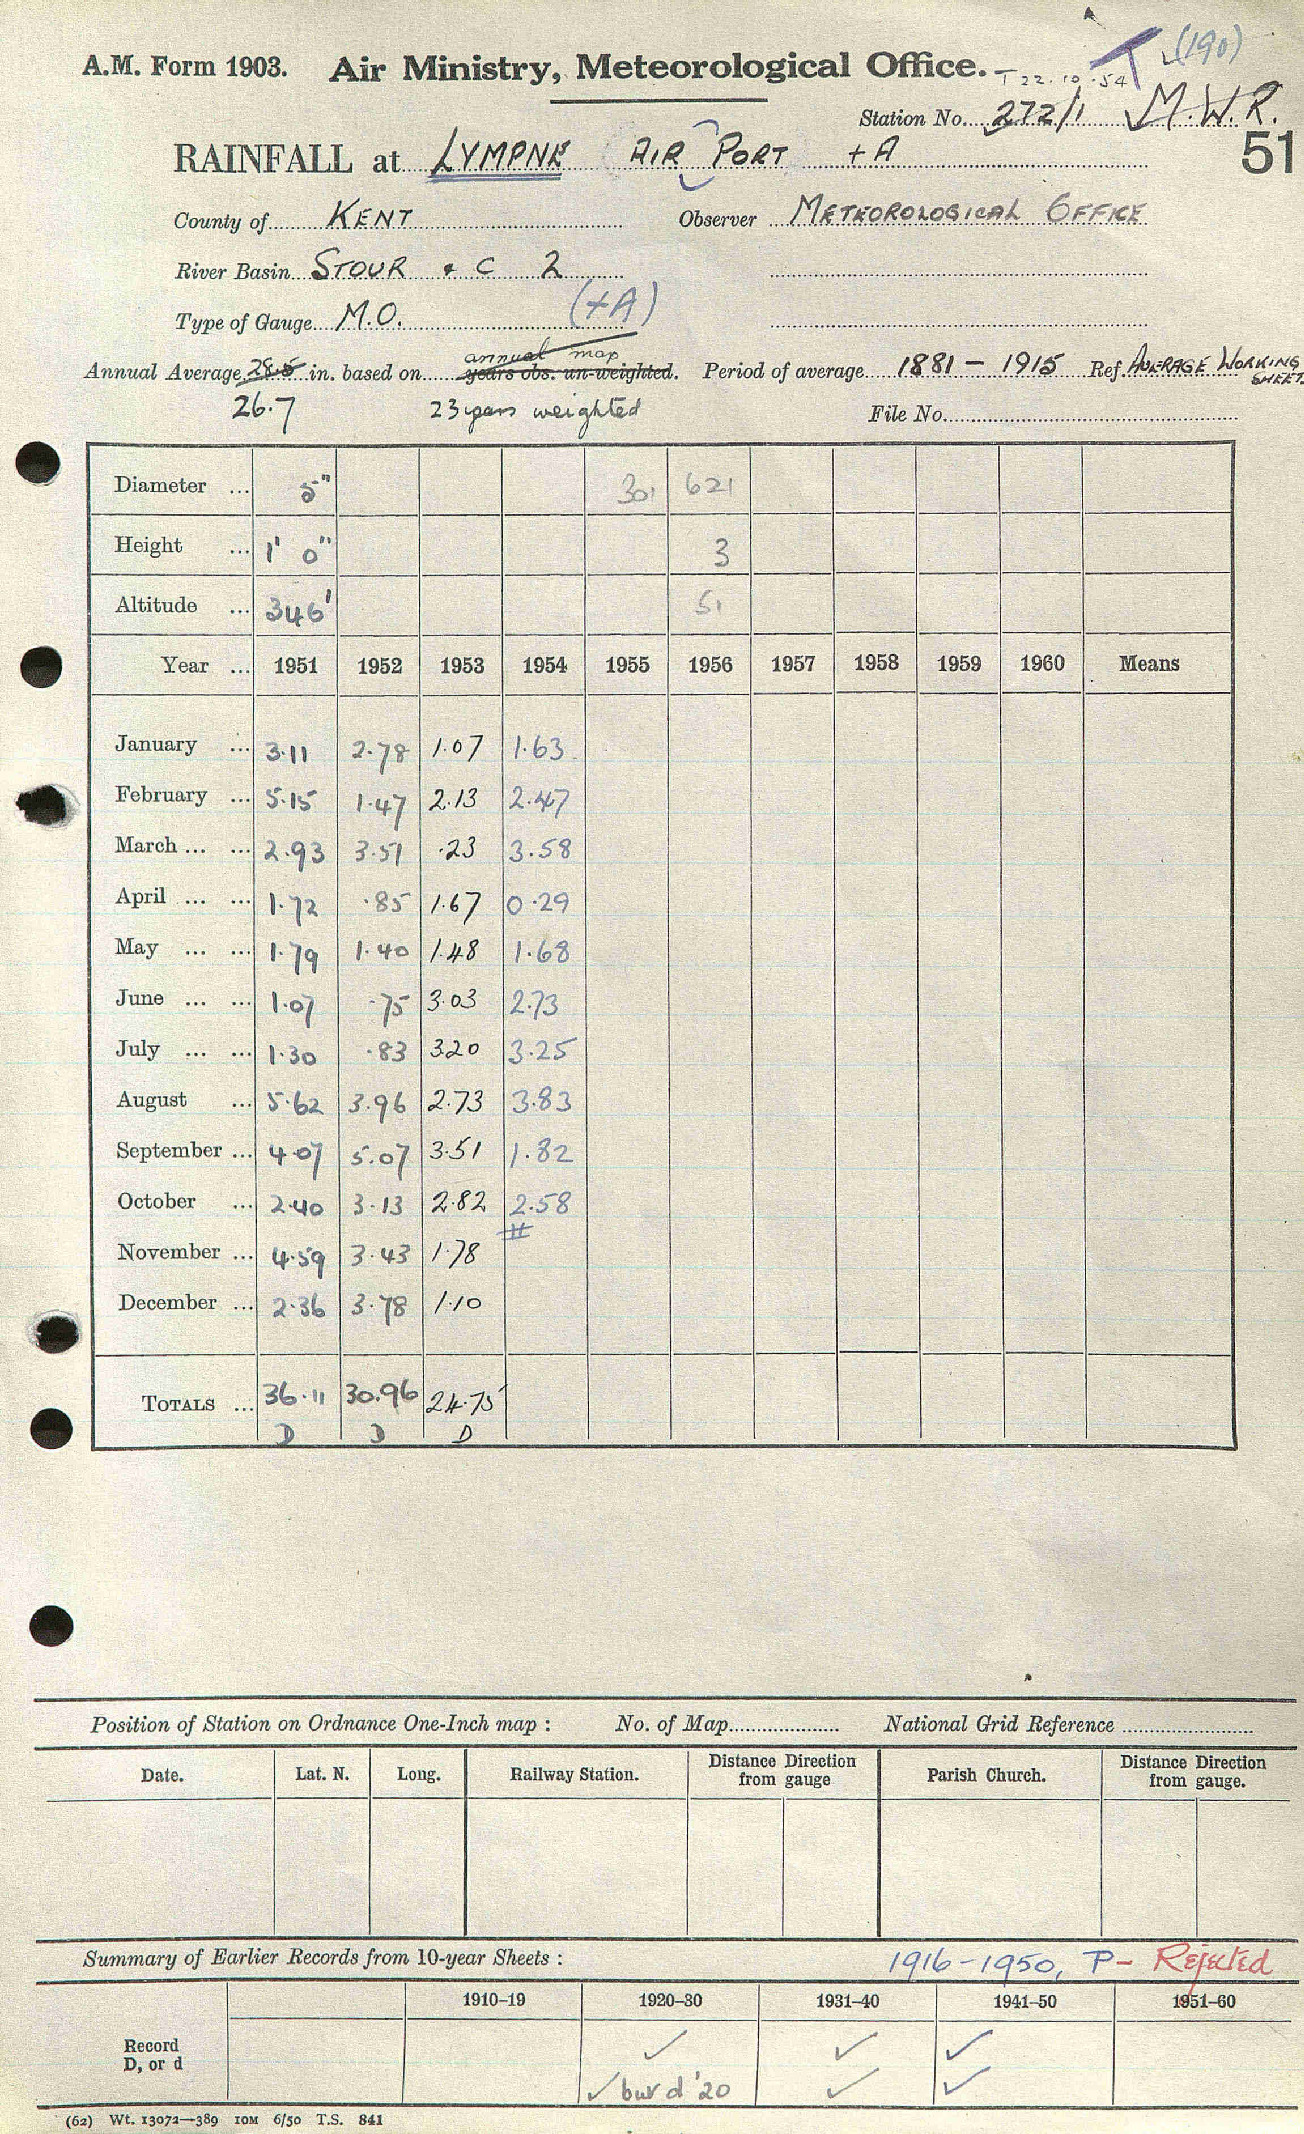 T (190)
A.M. Form 1903. Air Ministry, Meteorological Office. T 22.10.54
Station No. 272/1 M.W.R.
51
RAINFALL at LYMPNE AIR PORT + A
County of KENT Observer METEOROLOGICAL OFFICE
River Basin STOUR & C 2
Type of Gauge M.O. (+A)
annual map
Annual Average 28.5 in. based on years obs. un-weighted. Period of average 1881 - 1915 Ref. AVERAGE WORKING SHEET.
26.7 23 years weighted File No.
Diameter ... 5" 301 621
Height ... 1' 0" 3
Altitude ... 346' 51
Year ... 1951 1952 1953 1954 1955 1956 1957 1958 1959 1960 Means
January ... 3.11 2.78 1.07 1.63
February ... 5.15 1.47 2.13 2.47
March ... ... 2.93 3.51 .23 3.58
April ... ... 1.72 .85 1.67 0.29
May ... ... 1.79 1.40 1.48 1.68
June ... ... 1.07 .75 3.03 2.73
July ... ... 1.30 .83 320 3.25
August ... 5.62 3.96 2.73 3.83
September ... 4.07 5.07 3.51 1.82
October ... 2.40 3.13 2.82 2.58
November ... 4.59 3.43 1.78
December ... 2.36 3.78 1.10
TOTALS ... 36.11 30.96 24.75
D D D
Position of Station on Ordnance One-Inch map : No. of Map National Grid Reference
Date. Lat. N. Long. Railway Station. Distance Direction from gauge Parish Church. Distance Direction from gauge.
Summary of Earlier Records from 10-year Sheets : 1916-1950, P- Rejected
1910–19 1920–30 1931–40 1941–50 1951–60
Record ✓ ✓ ✓
D, or d ✓ but d '20 ✓ ✓
(62) Wt. 13072—389 10M 6/50 T.S. 841